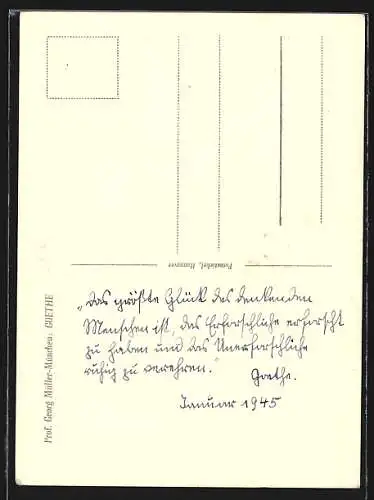 Prof. Georg Müller-München: GOETHE
Pirmadinkel, Hannover
„Das größte Glück des denkenden
Menschen ist, das Erforschliche erforscht
zu haben und das Unerforschliche
ruhig zu verehren."
Goethe.
Januar 1945